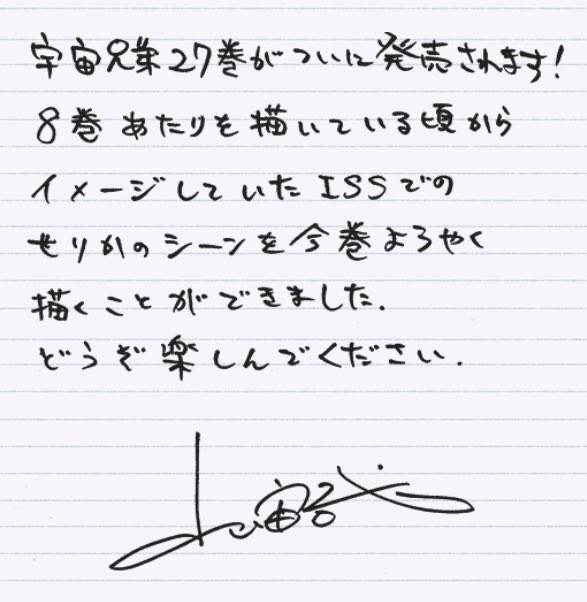 宇宙兄弟27巻がついに発売されます!
8巻あたりを描いている頃から
イメージしていたISSでの
せりかのシーンを今巻ようやく
描くことができました.
どうぞ楽しんでください.